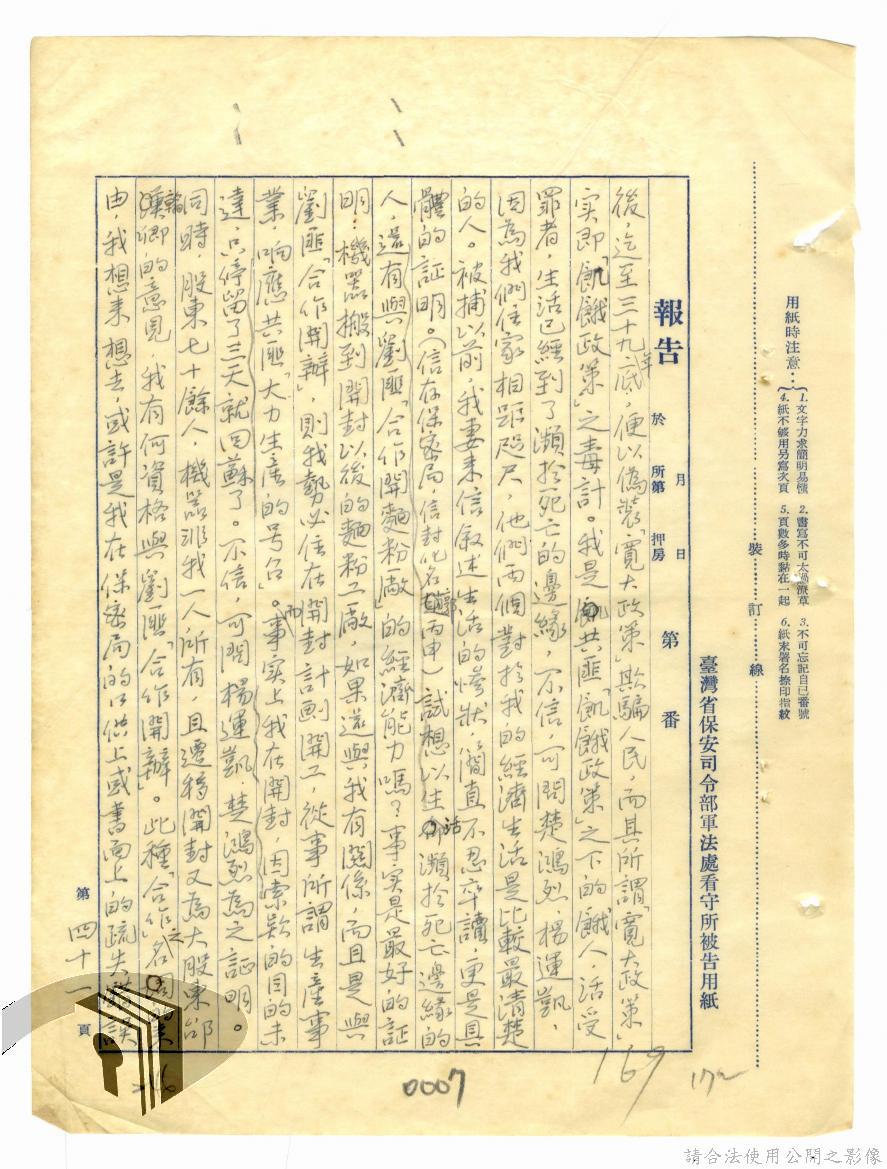 臺灣省保安司令部軍法處看守所被告用紙
用紙時注意：
1.文字力求簡明易懂 2.書寫不可太過潦草 3.不可忘記自己番號
4.紙不够用另寫次頁 5.頁數多時黏在一起 6.紙末署名捺印指紋
裝訂線
報告 於 月 日 所第 押房 第 番
後，迄至三十九年底，便以偽裝「寬大政策」欺騙人民，而其所謂「寬大政策」
实即「飢餓政策」之毒計。我是共匪「飢餓政策」之下的餓人，活受
罪者，生活已經到了瀕於死亡的邊緣，不信，可問楚鴻烈，楊運凱，
因為我們住家相距咫尺，他們兩個對於我的經濟生活是比較最清楚
的人。被捕以前，我妻來信敘述生活的慘狀，簡直不忍卒讀，更是具
體的証明。（信存保密局，信封化名郭丙申）試想以生活瀕於死亡邊緣的
人，還有與劉匪「合作開麵粉廠」的經濟能力嗎？事实是最好的証
明：機器搬到開封以後的麵粉工廠，如果還與我有關係，而且是與
劉匪「合作開辦」，則我勢必住在開封計劃開工，從事所謂生產事
業，响應共匪「大力生產的号召」。而事实上我在開封，因索欵的目的未
達，只停留了三天就回蘇了。不信，可問楊運凱楚鴻烈為之証明。
同時，股東七十餘人，機器非我一人所有，且遷移開封又為大股東邰
漢卿的意見，我有何資格與劉匪「合作開辦」。此種「合作」之名
由，我想來想去，或許是我在保密局的口供上或書面上的疏失錯誤
第四十一頁
169
172
0007
請合法使用公開之影像